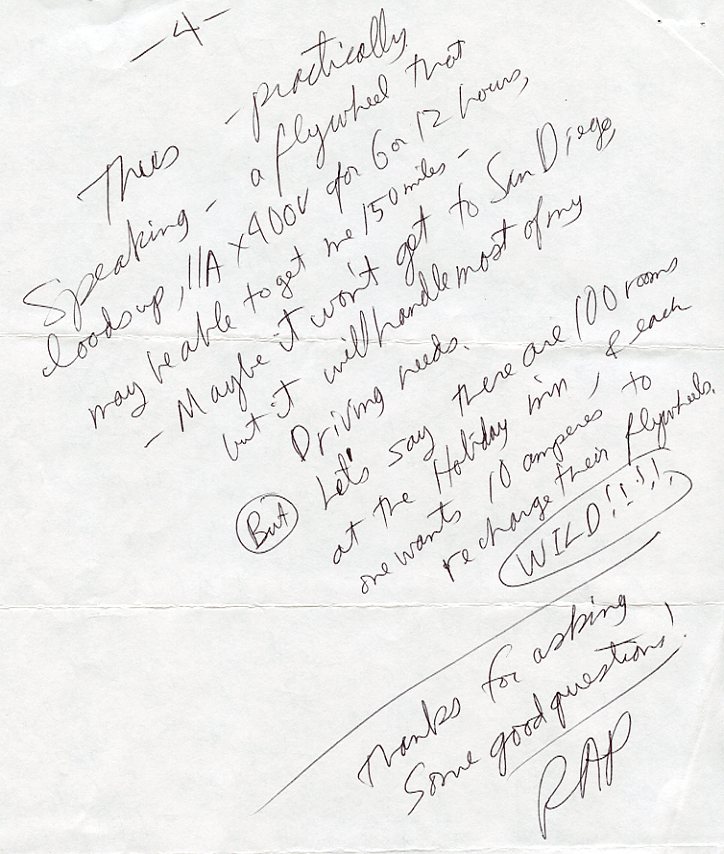 -4-
Thus - practically
Speaking - a flywheel that
loads up, 11A x 400V for 6 or 12 hours,
may be able to get me 150 miles -
- Maybe it won't get to San Diego,
but it will handle most of my
Driving needs.
But Let's say there are 100 rooms
at the Holiday inn, & each
one wants 10 amperes to
recharge their flywheels.
WILD!!!!!
Thanks for asking
Some good questions!
RAP